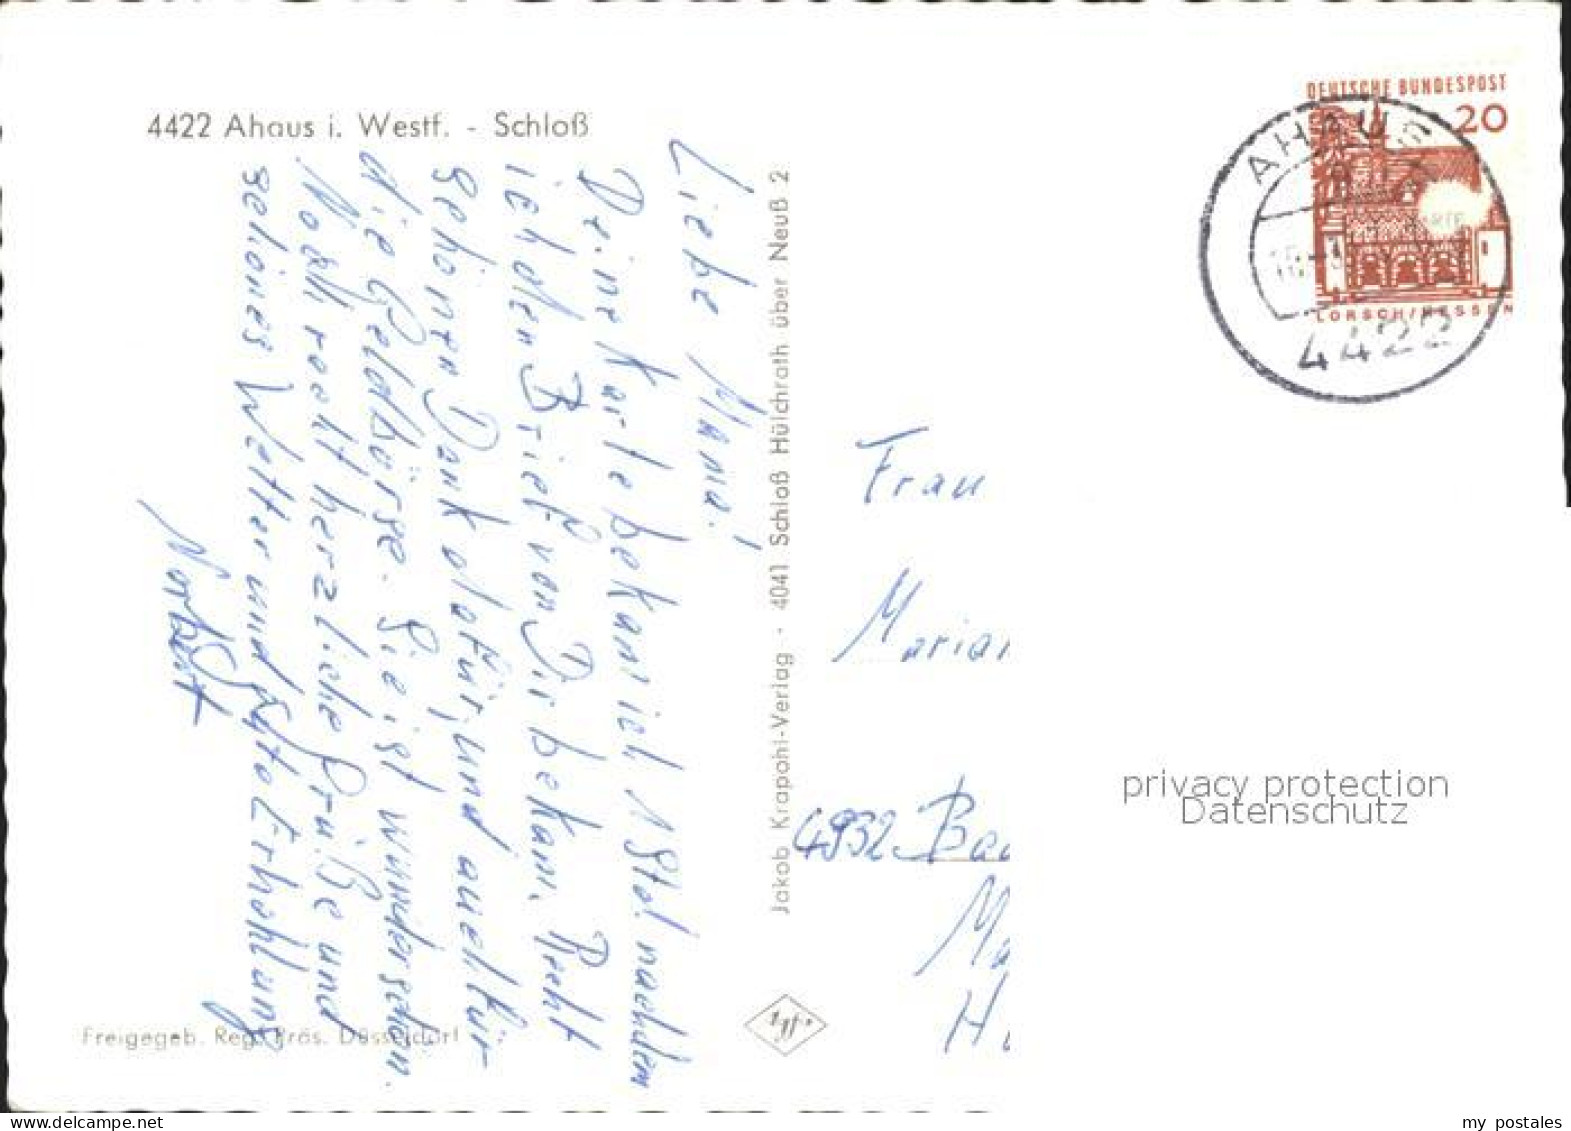 4422 Ahaus i. Westf. - Schloß
Liebe Mama!
Deine Karte bekam ich 1 Std. nachdem
ich den Brief von Dir bekam. Recht
schönen Dank dafür, und auch für
die Geldbörse. Sie ist wunderschön.
Noch recht herzliche Grüße und
schönes Wetter und gute Erholung
Norbert
Freigegeb. Reg. Präs. Düsseldorf
Jakob Krapohl-Verlag · 4041 Schloß Hülchrath über Neuß 2
Agfa
DEUTSCHE BUNDESPOST
20
LORSCH/HESSEN
AHAUS
4422
Frau
Marian
4932 Bad
Ma
H
privacy protection
Datenschutz
my_postales